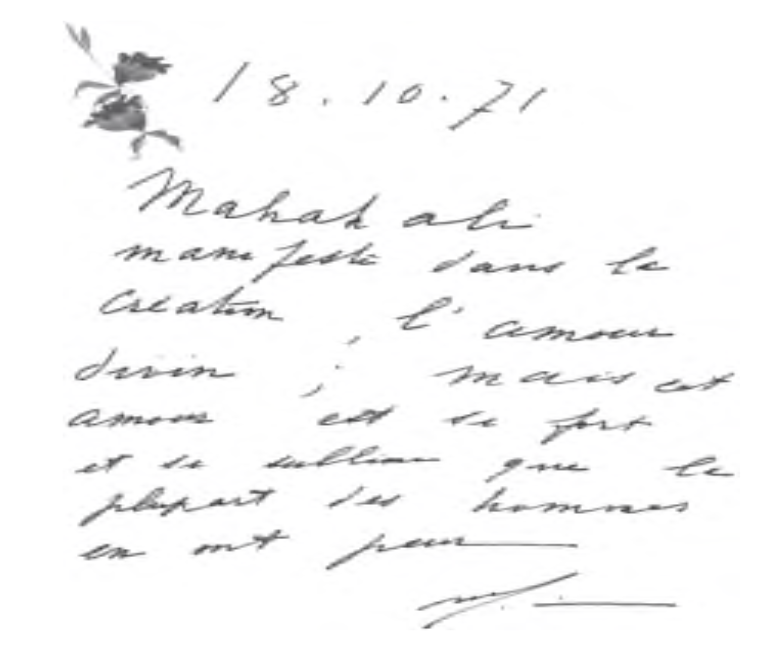 18.10.71
Mahakali
manifeste dans la
création, l'amour
divin ; mais cet
amour est si fort
et si sublime que la
plupart des hommes
en ont peur